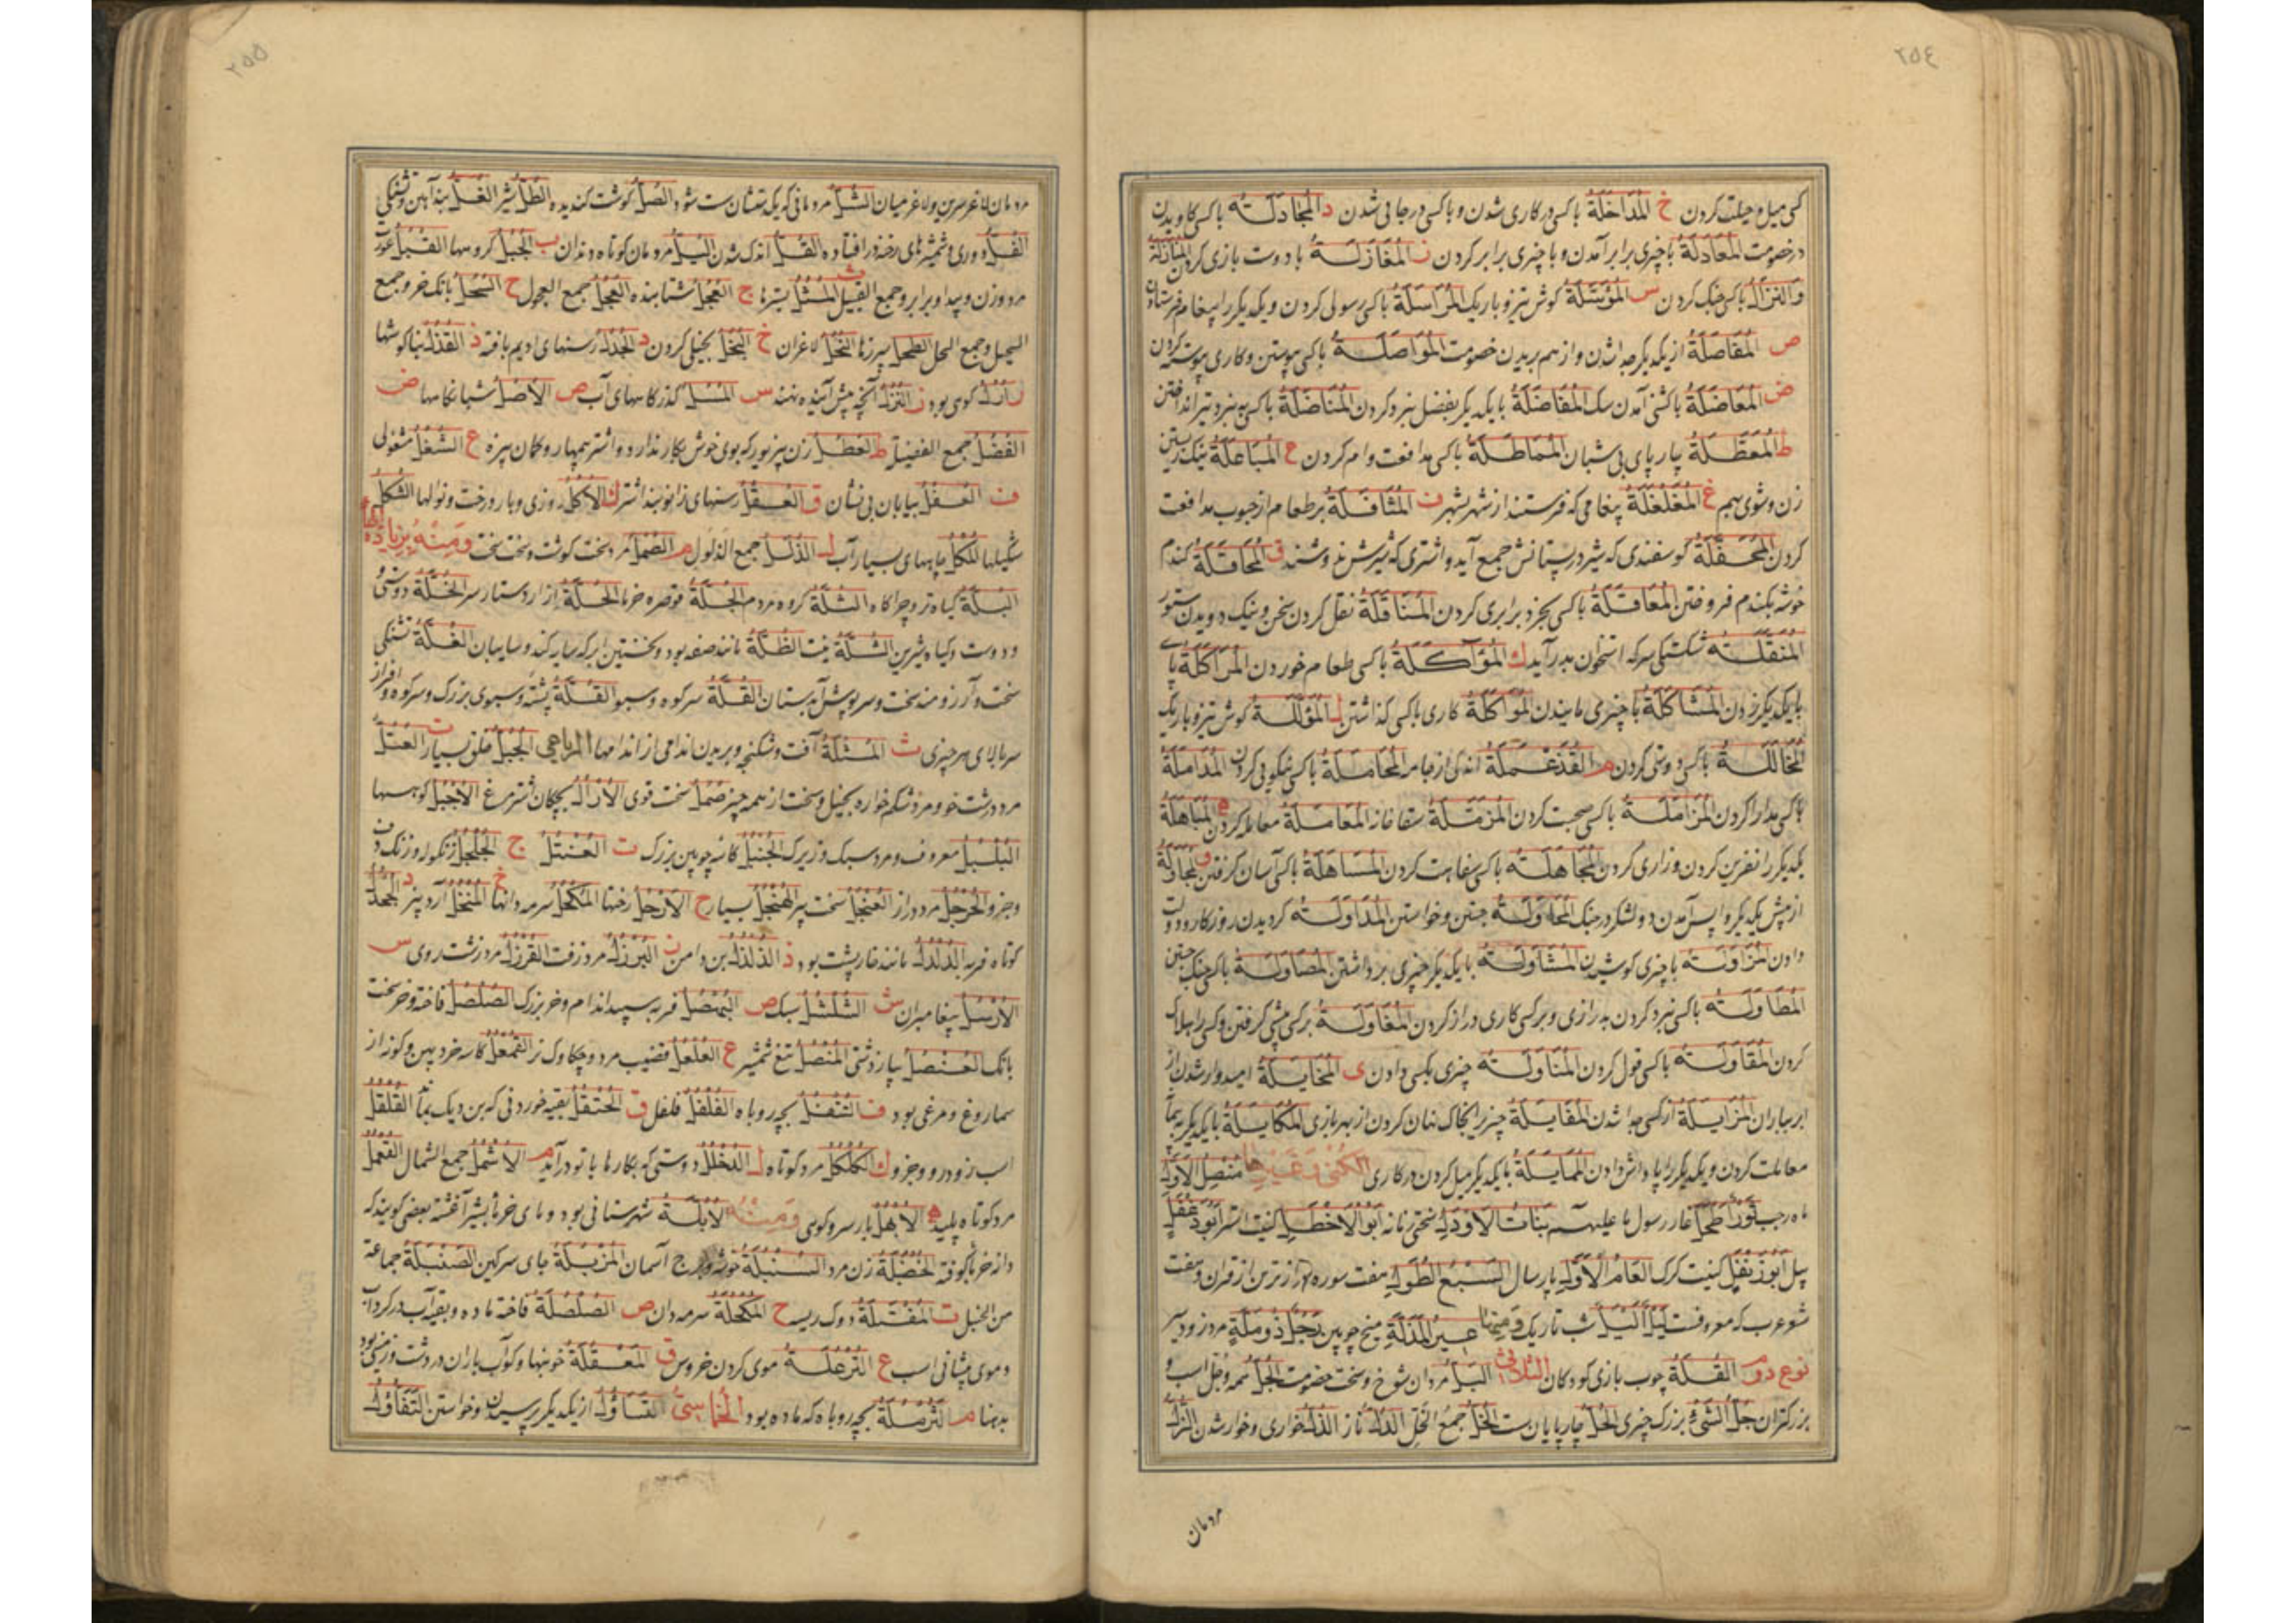 ٢٥٤
کسی میل و حیلت کردن خ المُدَاخَلَةُ باکسی در کاری شدن و باکسی در جائی شدن د المُجَادَلَتُه باکسی کاویدن
در خصومت المُعَادَلَةُ باچیزی برابر آمدن و باچیزی برابر کردن ز المُغَازَلَةُ بادوست بازی کردن المُنَازَلَةُ
والنِّزَالُ باکسی جنک کردن س المُؤَسَّلَةُ کوش تیز و باریک المُرَاسَلَةُ باکسی رسولی کردن و یکدیکر را پیغام فرستادن
ص المُفَاصَلَةُ از یکدیکر جدا شدن و از هم بریدن خصومت المُوَاصَلَةُ باکسی پیوستن و کاری پیوسته کردن
ض المُعَاضَلَةُ باکشنی آمدن سک المُفَاضَلَةُ بایکدیکر بفضل نبرد کردن المُنَاضَلَةُ باکسی به نبرد تیر انداختن
ط المُعَطَّلَةُ چارپای بی شبان المُمَاطَلَةُ باکسی مدافعت وام کردن ع المُبَاعَلَةُ نیک زیستن
زن و شوی بهم غ المُغَلْغَلَةُ پیغامی که فرستند از شهر بشهر ف المُثَافَلَةُ بر طعام از حبوب مدافعت
کردن المُحَفَّلَةُ کوسفندی که شیر در پستانش جمع آید و اشتری که شیرش ندوشند ق المُحَاقَلَةُ کندم
خوشه بکندم فروختن المُعَاقَلَةُ باکسی بخرد برابری کردن المُنَاقَلَةُ نقل کردن سخن و نیک دویدن ستور
المُنَقِّلَتُه شکستکی سر که استخوان بدر آید ك المُؤَاكَلَةُ باکسی طعام خوردن المُرَاكَلَةُ پای
بایکدیکر زدن المُشَاكَلَةُ باچیزی ماندن المُوَاكَلَةُ کاری باکسی کذاشتن ل المُؤَلَّلَةُ کوش تیز و باریک
المُخَالَلَةُ باکسی دوستی کردن م القُذَعْمِلَةُ اندکی از جامه المُجَامَلَةُ باکسی نیکوئی کردن المُدَامَلَةُ
باکسی مدارا کردن المُزَامَلَةُ باکسی صحبت کردن المُزَمَّلَةُ سقاخانه المُعَامَلَةُ معامله کردن ه المُبَاهَلَةُ
یکدیکر را نفرین کردن و زاری کردن المُجَاهَلَتُه باکسی سفاهت کردن المُسَاهَلَةُ باکسی آسان کرفتن و المُجَاوَلَةُ
از پیش یکدیکر واپس آمدن دو لشکر در جنک المُحَاوَلَتُه جستن و خواستن المُدَاوَلَتُه کردیدن روزکار و دولت
دادن المُزَاوَلَتُه باچیزی کوشیدن المُشَاوَلَتُه بایکدیکر چیزی برداشتن المُصَاوَلَةُ باکسی جنک جستن
المُطَاوَلَتُه باکسی نبرد کردن بدرازی و بر کسی کاری دراز کردن المُغَاوَلَةُ بر کسی پیشی کرفتن و کسی را هلاک
کردن المُقَاوَلَتُه باکسی قول کردن المُنَاوَلَتُه چیزی بکسی دادن ی المُخَايَلَةُ امیدوار شدن از
ابر بباران المُزَايَلَةُ از کسی جدا شدن المُفَايَلَةُ چیزی را بخاک نهان کردن از بهر بازی المُكَايَلَةُ بایکدیکر به پیمانه
معاملت کردن و یکدیکر را پاداش دادن المُمَايَلَةُ بایکدیکر میل کردن در کاری الكُنٰى وَغَيْرُهَا مُنْصِلُ الاَوَّلِ
ماه رجب ثَوْرُ أَطْحَلَ غار رسول ما علیه السلام بَنَاتُ الاَوْدَلِ سختی زنانه اَبُو الاَخْطَلِ کنیت استر اَبُو دَغْفَلٍ
پیل اَبُو زَنْفَلٍ کنیت کرک العَامُ الاَوَّلُ پارسال السَّبْعُ الطُّوَلُ هفت سوره درازترین از قرآن و هفت
شعر عرب که معروفست لَيْلٌ اَلْيَلُ شب تاریک وَ مِنْهَا عَيْرُ المَذَلَّةِ میخ چوبین رَجُلٌ ذُو مَلَّةٍ مرد زود سیر
نوع دوم القُلَةُ چوب بازی کودکان الثُّلَاثِیّ ا البُلُّ مردان شوخ و سخت خصومت الجُلُّ همه و جل اسب و
بزرکتران جُلُّ الشَّیْءِ بزرک چیزی الحُلُّ چارپایان سست الخُلُّ جمع الخَلِّ الدَّلُّ ناز الذُّلُّ خواری و خوار شدن الزُّلُّ
مردمان
٢٥٥
مردمان لاغر سرین و لاغر میان الشُّلُّ مردمانی که یک دستشان سست شود الصُّلُّ کوشت کندیده الطُّلُّ شیر الغُلُّ بند آهین و تشنکی
الفُلُّ دوری و شمشیرهای رخنه در افتاده القُلُّ اندک شدن اليُلُّ مردمان کوتاه دندان ب الجُبُلُ کروهها القُبُلُ عورت
مرد و زن و پیدا و برابر و جمع القبیل ث المُثُلُ بسترها ج العُجُلُ شتابنده العُجُلُ جمع العجول ح السُّحُلُ بانک خر و جمع
السحیل و جمع السحل الطُّحُلُ سپرزها النُّحُلُ لاغران خ البُخُلُ بخیلی کردن د الجُدُلُ رسنهای ادیم بافته ذ القُذُلُ بناکوشها
ر اُرُلٌ کوهی بود ز النُّزُلُ آنچه پیش آینده نهند س المُسُلُ کذرکاههای آب ص الاُصُلُ شبانکاهها ض
الفُضُلُ جمع الفضیلة ط العُطُلُ زن بی زیور که بوی خوش بکار ندارد و اشتر بی مهار و کمان بی زه ع الشُّغُلُ مشغولی
ف الغُفُلُ بیابان بی نشان ق العُقُلُ رسنهای زانو بند اشتر ك الاُكُلُ روزی و بار درخت و نوالها الشُّكُلُ
شکیلها المُكُلُ چاههای بسیار آب ل الذُّلُلُ جمع الذلول م الصُّمُلُّ مرد سخت کوشت و سخت سخت وَمِنْهُ بِزِیادَةِ الهَاءِ
البُلَّةُ کیاه تر و چراکاه الثُّلَّةُ کروه مردم الجُلَّةُ قوصره خرما الحُلَّةُ ازار و ستار سر الخُلَّةُ دوستی و
و دوست و کیاه شیرین الشُّلَّةُ نیت الظُّلَّةُ مانند صفه بود و نخستین ابر که سایه کند و سایبان الغُلَّةُ تشنکی
سخت و آرزومند سخت و سرپوش آبدستان القُلَّةُ سر کوه و سبو القُلَّةُ پشته و سبوی بزرک و سر کوه و افراز
سر بالای هر چیزی ث المُثْلَةُ آفت و شکنجه و بریدن اندامی از اندامها الرباعی الجُبُلُّ خلق بسیار ت العُتُلُّ
مرد درشت خو و مرد شکم خواره بخیل و سخت از همه چیز صُمُلٌّ سخت قوی الاُرْاُلُ بچکان شترمرغ الاَجْبُلُ کوهها
البُلْبُلُ معروف و مرد سبک و زیرک الجُنْبُلُ کاسه چوبین بزرک ت العُنْتُلُ ج الجُلْجُلُ زنکوله و زنک دف
وجز و الحُرْجُلُ مرد دراز العُنْجُلُ سخت پیر الهُنْجُلُ بسیار ح الاَرْحُلُ رختها المُكْحُلُ سرمه دانها خ المُنْخُلُ آرد بیز د الجُحْدُلُ
کوتاه فربه الدُّلْدُلُ مانند خارپشت بود ذ الذُّلْذُلُ بن دامن ز البُرْزُلُ مرد زفت القُرْزُلُ مرد زشت روی س
الاُرْسُلُ پیغامبران ش الشُّلْشُلُ سبک ص البُهْصُلُ فربه سپید اندام و خر بزرک الصُّلْصُلُ فاخته و خر سخت
بانک العُنْصُلُ پیاز دشتی المُنْصُلُ تیغ شمشیر ع العُلْعُلُ قضیب مرد و چکاوک نر القُمْعُلُ کاسه خرد پهن و کوزه از
سماروغ و مرغی بود ف التُّتْفُلُ بچه روباه الفُلْفُلُ فلفل ق الحُثْقُلُ بقیه خوردنی که بن دیک بماند القُلْقُلُ
اسب زود رو وجز و ك الكُلْكُلُ مرد کوتاه ل الدُّخْلُلُ دوستی که بکارها با تو درآید م الاَشْمُلُ جمع الشمال القُمْعُلُ
مرد کوتاه پلید ه الاُبْهُلُ بار سرو کوهی وَمِنْهُ الاُبُلَّةُ شهرستانی بود و مای خرما بشیر آغشته بعضی کویند که
دانه خرما کوفته الخُصُلَّةُ زن مرد السُّنْبُلَةُ خوشه و برج آسمان المَزْبُلَةُ جای سرکین الصُّنْبُلَةُ جماعة
من الخیل ت المُفْتُلَةُ دوک ریسه ح المُكْحُلَةُ سرمه دان ص الصُّلْصُلَةُ فاخته ماده و بقیه آب در کرداب
و موی پیشانی اسب ع التُّرْعُلَةُ موی کردن خروس ق المَعْقُلَةُ خونبها و کوآب باران در دشت و زمینی بود
بدهنا م الثُّرْمُلَةُ بچه روباه که ماده بود الخُمَاسِیُّ التَّسَاؤُلُ از یکدیکر پرسیدن و خواستن التَّفَاؤُلُ